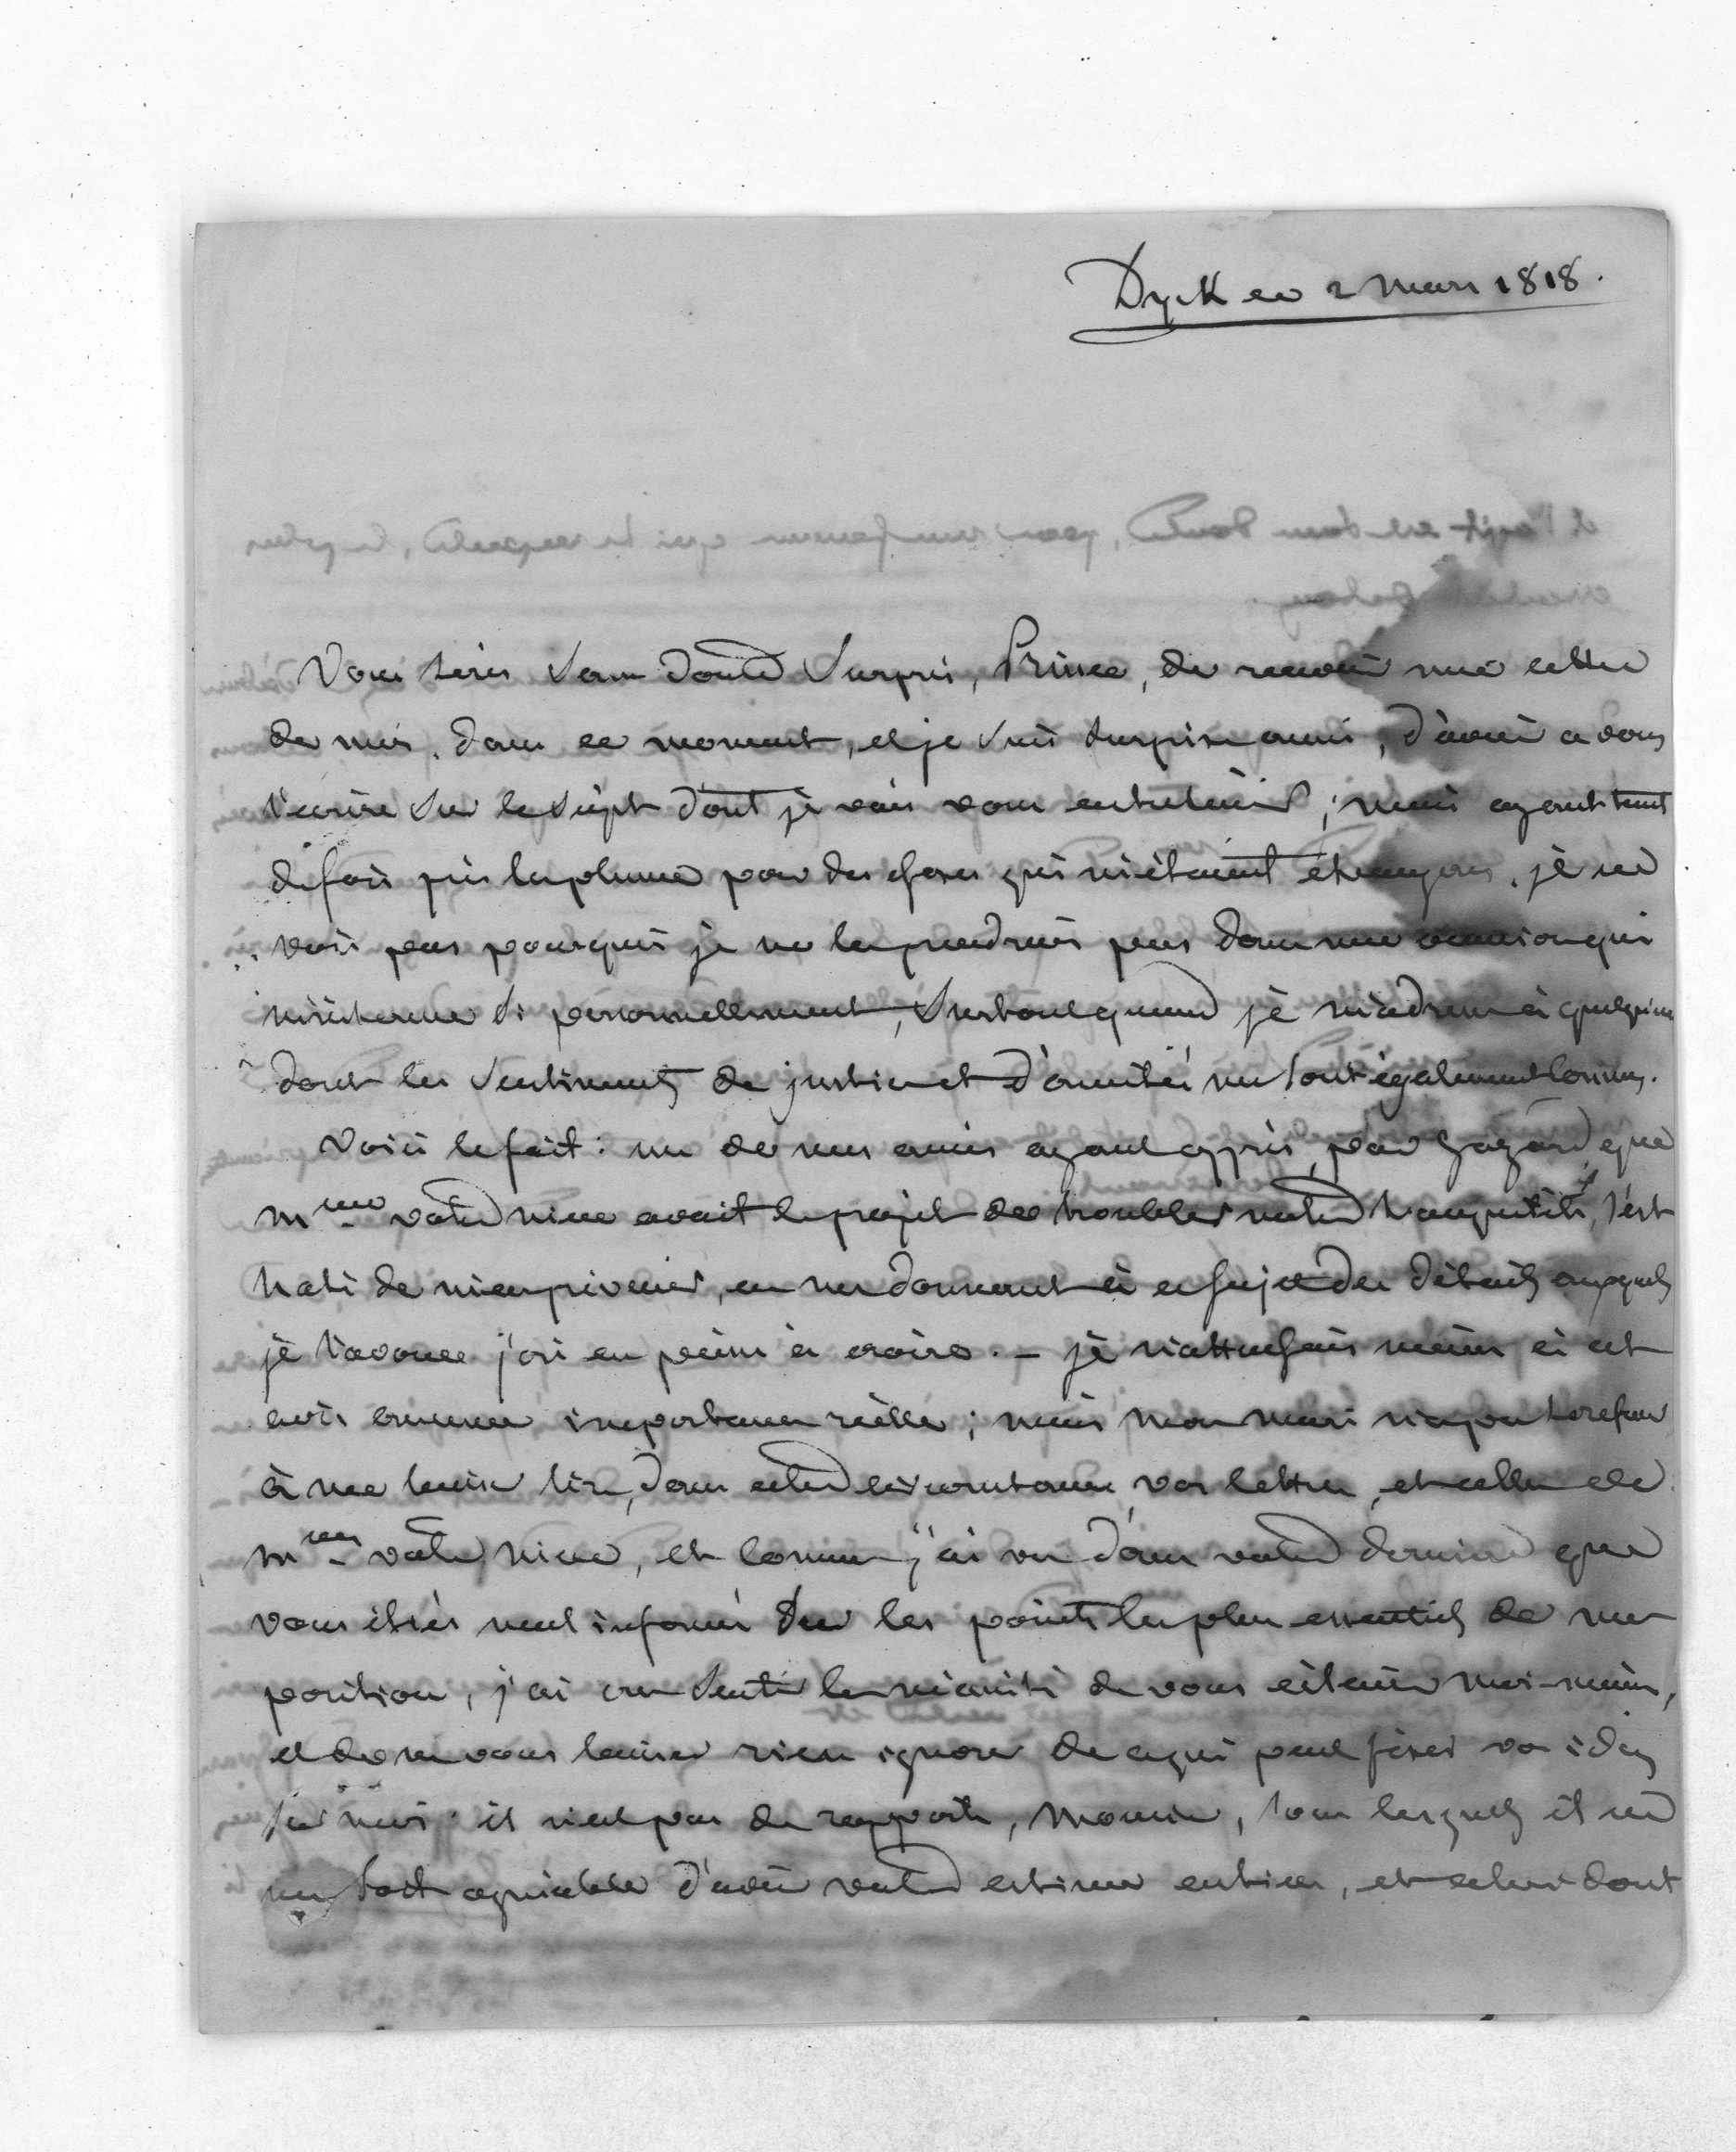 Dyck ce 2 Mars 1818.
Vous serés sans doute surpris, Prince, de recevoir une lettre
de moi, dans ce moment, et je suis surprise aussi, d'avoir a vous
écrire sur le sujet dont je vais vous entretenir; mais ayant tant
de fois pris la plume pour des choses qui m'étaient étrangeres, je ne
vois pas pourquoi je ne la prendrais pas dans une occasion qui
m'interesse si personnellement, surtout quand je m'adresse à quelqu'un
dont les sentiments de justice et d'amitié me sont également connus.
Voici le fait: un de mes amis ayant appris, par hazard que
Mme votre niece avait le projet de troubler notre tranquilité, s'est
haté de m'en prévenir, en me donnant à ce sujet des détails auxquels
je l'avoue j'ai eu peine à croire. – je n'attachais même à cet
avis aucune importance réelle; mais mon mari n'a pu se refuser
à me laisser lire, dans cette circonstance, vos lettres, et celles de
Mme votre niece, et comme j'ai vu dans votre derniere que
vous étiés mal informé sur les points les plus essentiels de ma
position, j'ai cru sentir la nécessité de vous éclairer moi-même,
et de ne vous laisser rien ignorer de ce qui peut fixer vos idées
sur moi. il n'est pas de rapports, Monsieur, sous lesquels il ne
me soit agréable d'avoir votre estime entiere, et celui dont